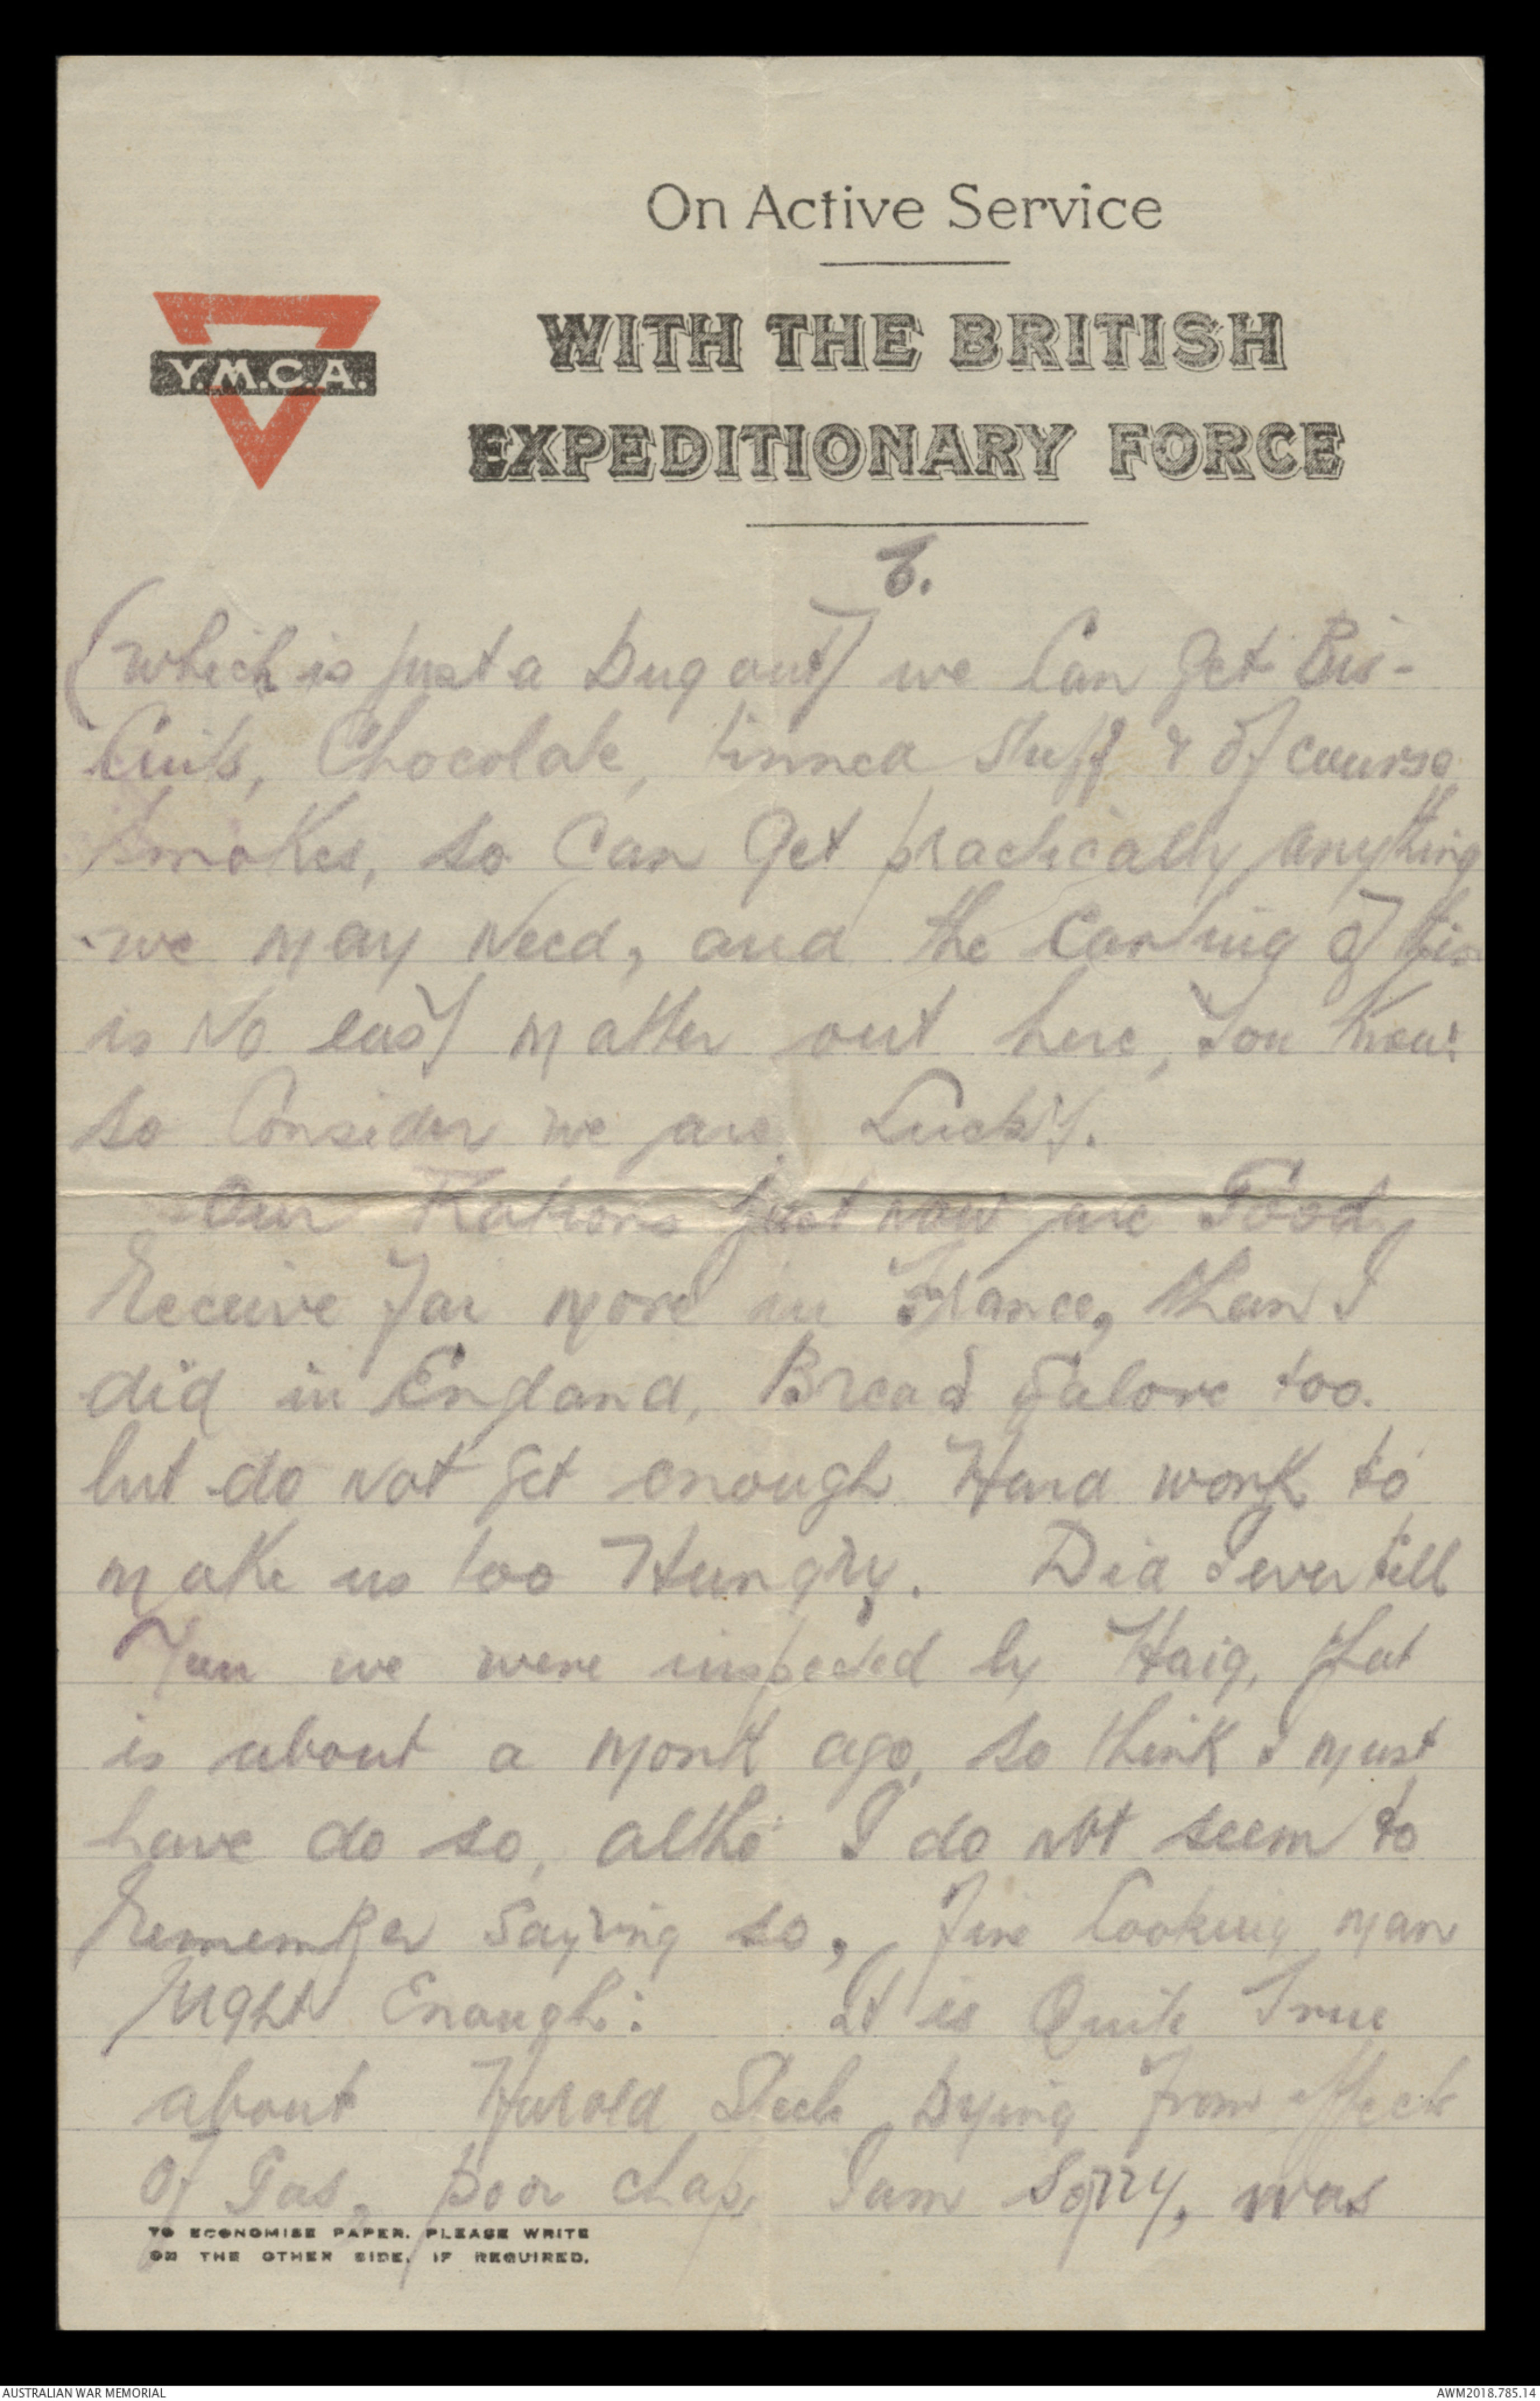 On Active Service
WITH THE BRITISH
EXPEDITIONARY FORCE
Y.M.C.A.
(which is just a Dug out) we Can get Bis-
cuits, Chocolate, tinned stuff & of course
smokes, so Can get practically anything
we may Need, and the Carting of this
is No easy matter out here, you know
so Consider we are Lucky.
Our Rations just now are Good,
receive far more in France, than I
did in England, Bread Galore too.
but do not get enough Hard work to
make us too Hungry. Did I ever tell
You we were inspected by Haig, that
is about a month ago, so think I must
have do so, altho' I do not seem to
remember saying so, fine looking man
right Enough: It is Quite True
about Harold Dying from effects
of Gas, poor chap, I am sorry, was
TO ECONOMISE PAPER, PLEASE WRITE
ON THE OTHER SIDE, IF REQUIRED.
AUSTRALIAN WAR MEMORIAL
AWM2018.785.14